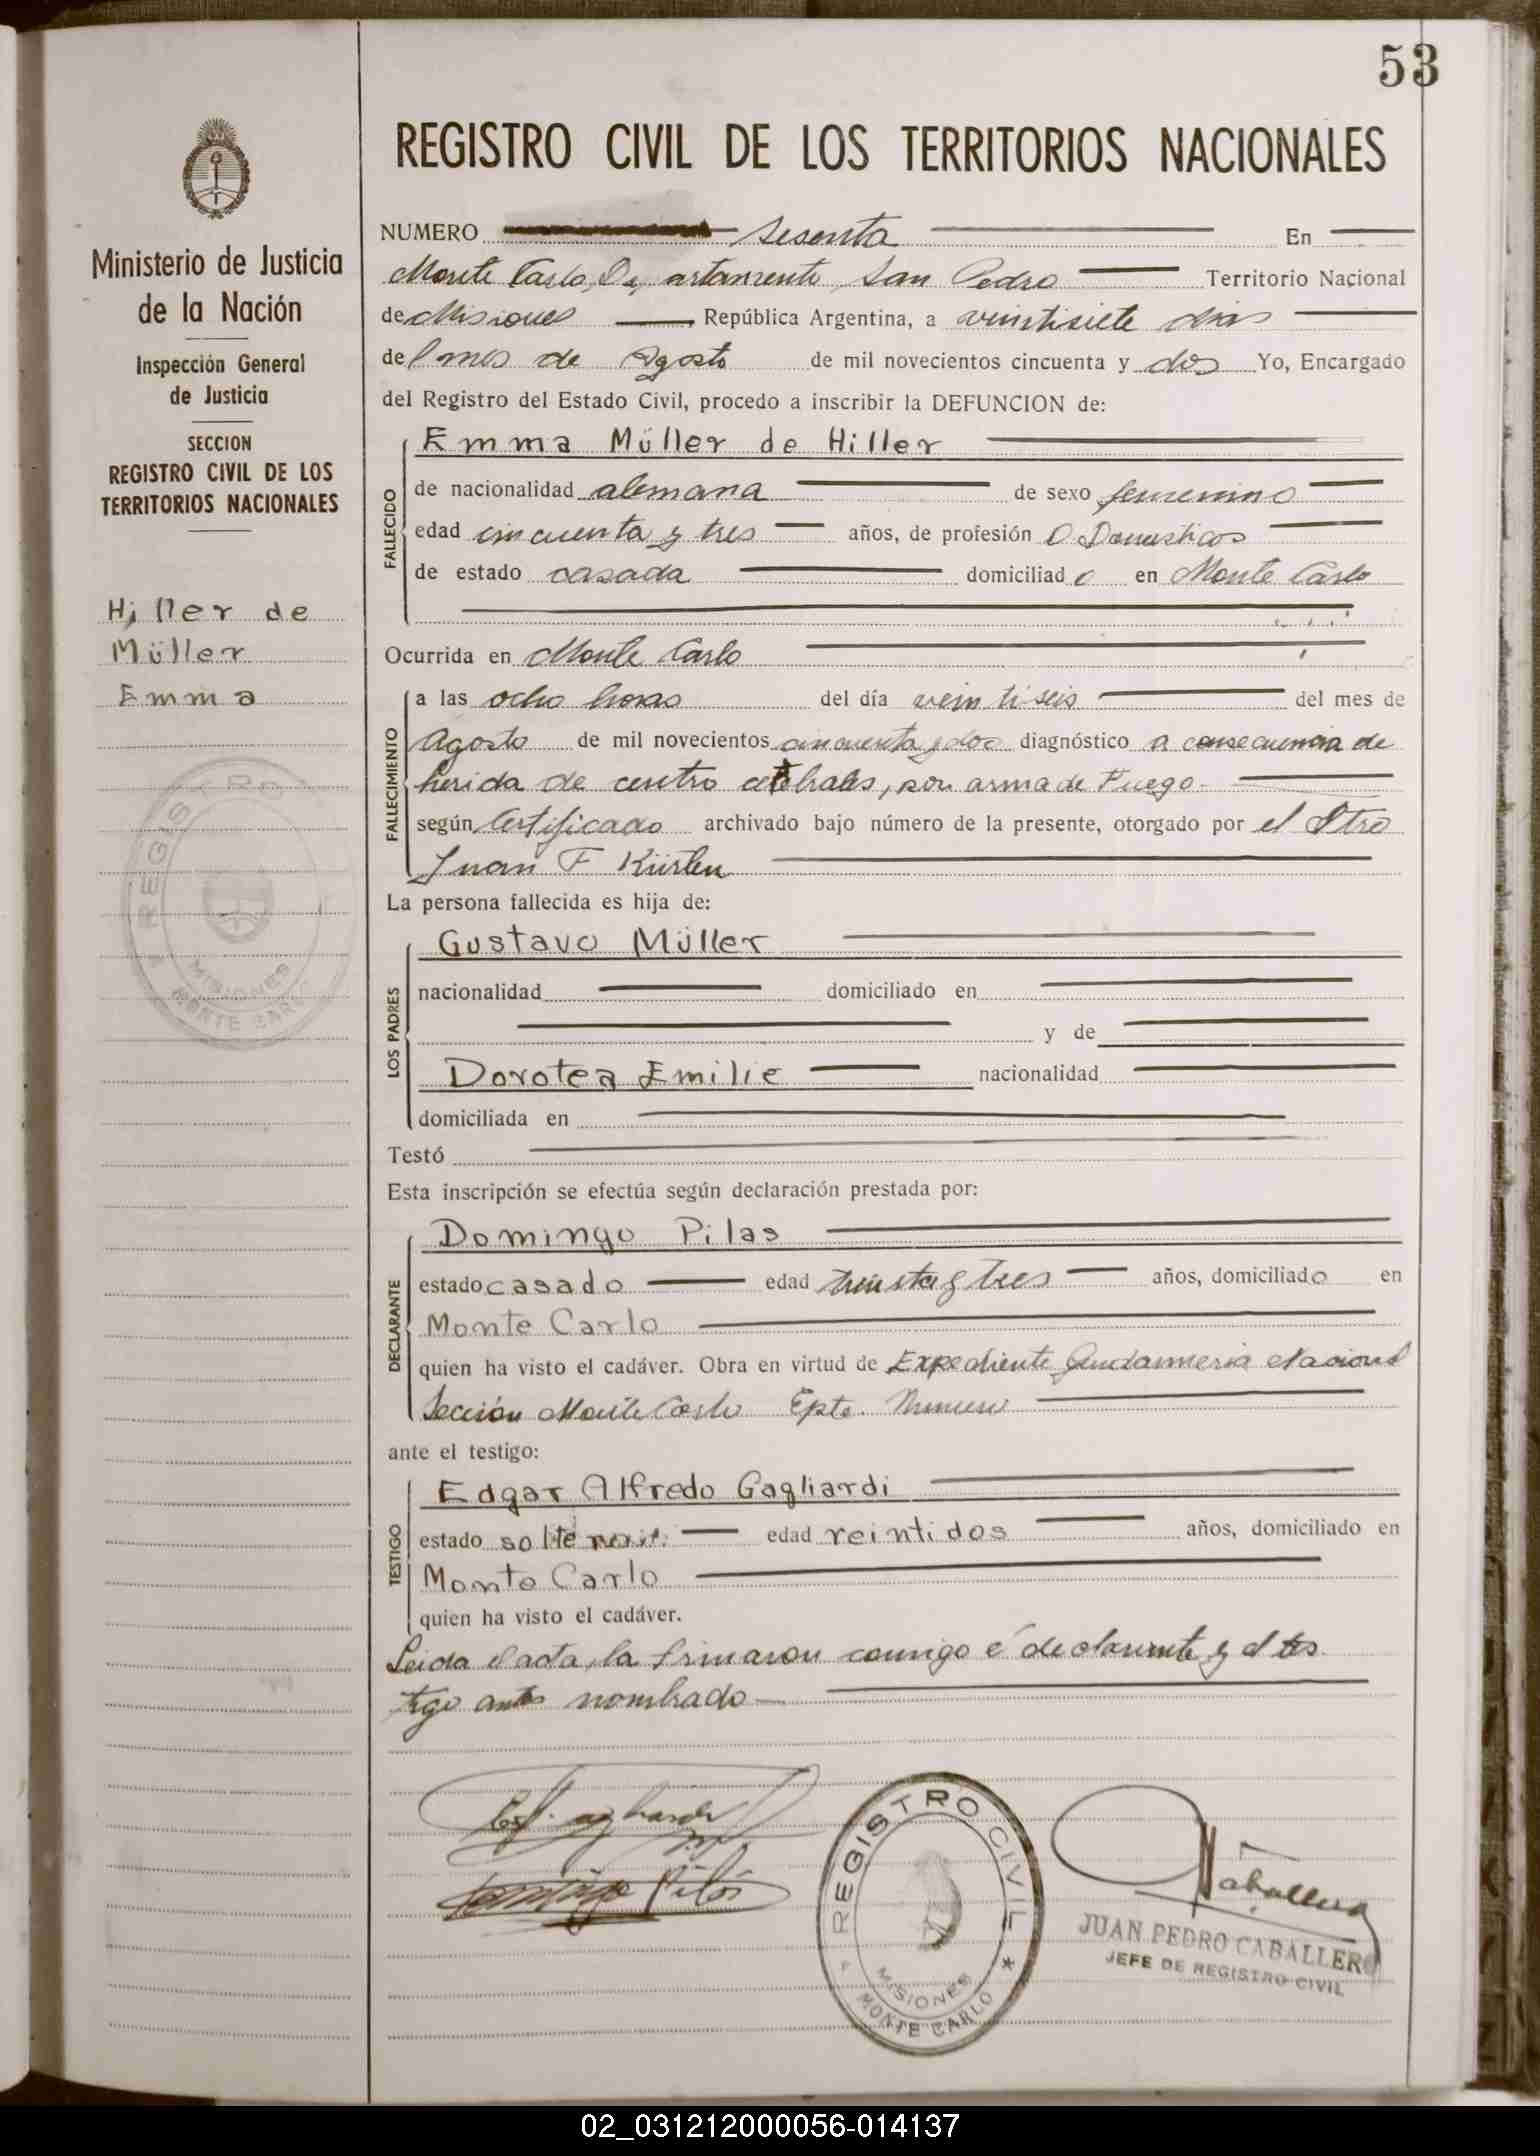 53
REGISTRO CIVIL DE LOS TERRITORIOS NACIONALES
Ministerio de Justicia
de la Nación
Inspección General
de Justicia
SECCION
REGISTRO CIVIL DE LOS
TERRITORIOS NACIONALES
Hiller de
Müller
Emma
REGISTRO
MISIONES
MONTE CARLO
NUMERO sesenta En
Monte Carlo, Departamento San Pedro Territorio Nacional
de Misiones República Argentina, a veintisiete dias
del mes de Agosto de mil novecientos cincuenta y dos Yo, Encargado
del Registro del Estado Civil, procedo a inscribir la DEFUNCION de:
Emma Müller de Hiller
FALLECIDO
de nacionalidad alemana de sexo femenino
edad cincuenta y tres años, de profesión Q Domesticos
de estado casada domiciliado en Monte Carlo
Ocurrida en Monte Carlo
FALLECIMIENTO
a las ocho horas del día veintiseis del mes de
Agosto de mil novecientos cincuenta y dos diagnóstico a consecuencia de
herida de centro cetebrales, por arma de Fuego.
según Certificado archivado bajo número de la presente, otorgado por el
Juan F Kürten
La persona fallecida es hija de:
Gustavo Müller
LOS PADRES
nacionalidad domiciliado en
y de
Dorotea Emilie nacionalidad
domiciliada en
Testó
Esta inscripción se efectúa según declaración prestada por:
Domingo Pilas
DECLARANTE
estado casado edad treinta y tres años, domiciliado en
Monte Carlo
quien ha visto el cadáver. Obra en virtud de Expediente Gendarmeria Nacional
Sección Monte Carlo Epto.
ante el testigo:
Edgar Alfredo Gagliardi
TESTIGO
estado soltero edad veintidos años, domiciliado en
Monte Carlo
quien ha visto el cadáver.
Leida el acta, la firmaron conmigo é declarante y el tes
tigo antes nombrado
REGISTRO CIVIL
MISIONES
MONTE CARLO
Caballero
JUAN PEDRO CABALLERO
JEFE DE REGISTRO CIVIL
02_031212000056-014137